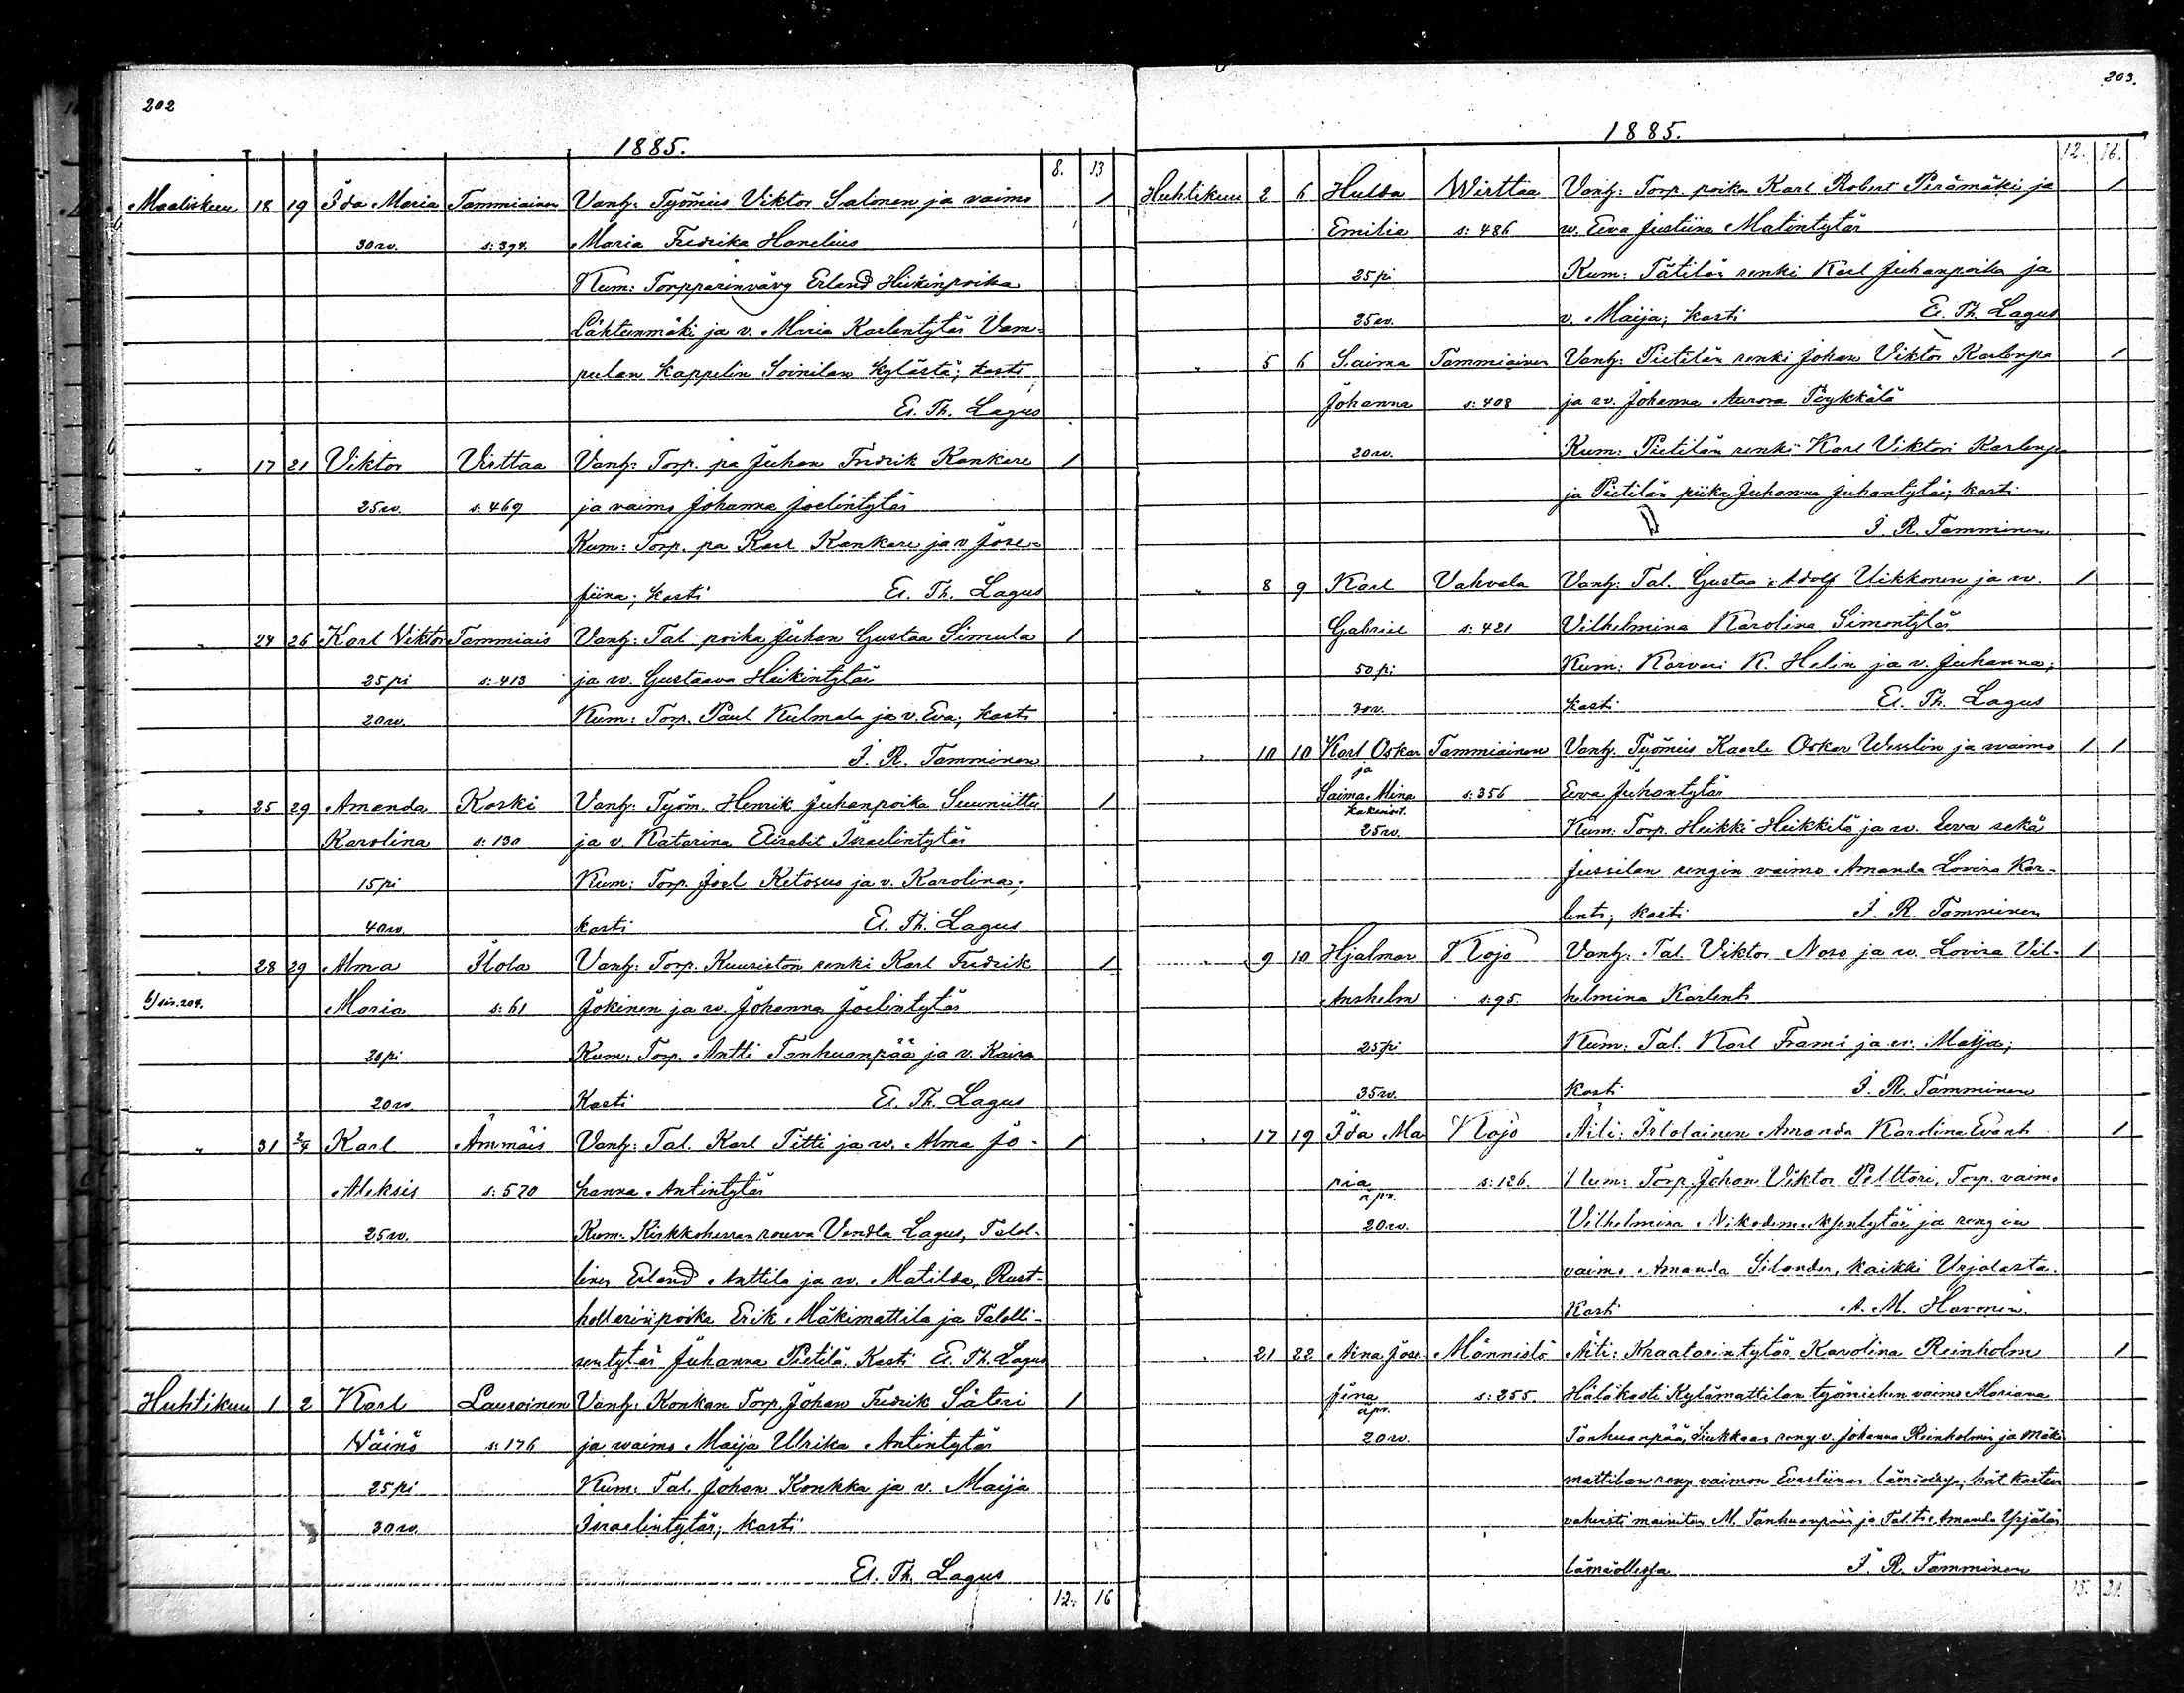 202
1885.
8. 13
Maaliskuu 18 19 Ida Maria Tammiainen Vanh: Työmies Viktor Salonen ja vaimo 1
30 w. s: 394. Maria Fredrika Hanelius
Kum: Torpparinvävy Erland Heikinpoika
Lähteenmäki ja v. Maria Karlentytär Vam-
pulan Kappelin Soinilan Kylästä; kasti
El. Th. Lagus
" 17 21 Viktor Virttaa Vanh: Torp. pa Juhan Fredrik Kankare 1
25 w. s: 469 ja vaimo Johanna Joelintytär
Kum: Torp. pa Karl Kankare ja v Jose-
fiina; kasti El. Th. Lagus
" 24 26 Karl Viktor Tammiais Vanh: Tal. poika Juhan Gustaa Simula 1
25 pi s: 413 ja w. Gustaava Heikintytär
20 w. Kum: Torp. Paul Kulmala ja v. Eva; kasti
I. R. Tamminen
" 25 29 Amanda Koski Vanh: Työm. Henrik Juhanpoika Suuniittu 1
Karolina s: 130 ja v. Katarina Elisabet Israelintytär
15 pi Kum: Torp. Joel Ketosuo ja v. Karolina;
40 w. kasti El. Th. Lagus
" 28 29 Alma Ilola Vanh: Torp. Kuusiston renki Karl Fredrik 1
b) siv. 204. Maria s: 61 Jokinen ja w. Johanna Joelintytär
20 pi Kum: Torp. Antti Tanhuanpää ja v. Kaisa
20 w. Kasti El. Th. Lagus
" 31 2/4 Karl Ammäis Vanh: Tal. Karl Titti ja w. Alma Jo- 1
Aleksis s: 520 hanna Antintytär
25 w. Kum: Kirkkoherran rouva Vendla Lagus, Talol-
linen Erland Anttila ja w. Matilda, Rust-
hollarin poika Erik Mäkimattila ja Talolli-
sentytär Juhanna Pietilä. Kasti El. Th. Lagus
Huhtikuu 1 2 Karl Lauroinen Vanh: Konkan Torp. Johan Fredrik Säteri 1
Väinö s: 176 ja waimo Maija Ulrika Antintytär
25 pi Kum: Tal. Johan Konkka ja v. Maija
30 w. Israelintytär; kasti
El. Th. Lagus
12. 16
203.
1885.
12. 16.
Huhtikuu 2 6 Hulda Wirttaa Vanh: Torp. poika Karl Robert Perämäki ja 1
Emilia s: 486 w. Eeva Justiina Matintytär
25 pi Kum: Tätilän renki Karl Juhanpoika ja
25 w. v. Maija; kasti El. Th. Lagus
" 5 6 Saima Tammiainen Vanh: Pietilän renki Johan Viktor Karlenpa 1
Johanna s: 408 ja w. Johanna Aurora Pöykkälä
20 w. Kum: Pietilän renki Karl Viktori Karlenpa
ja Pietilän piika Juhanna Juhantytär; kasti
I. R. Tamminen
" 8 9 Karl Vahvala Vanh: Tal. Gustaa Adolf Uikkonen ja w. 1
Gabriel s: 421 Vilhelmina Karolina Simontytär
50 pi Kum: Karvari K. Helin ja v. Juhanna;
30 v. kasti El. Th. Lagus
" 10 10 Karl Oskar Tammiainen Vanh. Työmies Kaarle Oskar Wesslin ja waimo 1 1
ja
Saima Mina s: 356 Eeva Juhantytär
kaksoiset.
25 w. Kum: Torp. Heikki Heikkilä ja w. Eeva sekä
Jussilan rengin vaimo Amanda Lovisa Kar-
lent; kasti I. R. Tamminen
" 9 10 Hjalmar Kojo Vanh: Tal. Viktor Noro ja w. Lovisa Vil- 1
Anshelm s: 95. helmina Karlent
25 pi Kum: Tal. Karl Frami ja w. Maija;
35 w. Kasti I. R. Tamminen
" 17 19 Ida Ma Kojo Äiti: Itlolainen Amanda Karolina Evant 1
ria s: 126. Kum: Torp. Johan Viktor Pelttari, Torp. vaimo
äpr.
20 w. Vilhelmina Nikodemuksentytär ja rengin
vaimo Amanda Silander, kaikki Urjalasta.
Kasti A. M. Havonen.
" 21 22 Nina Jose Männistö Äiti: Kraatarintytär Karolina Reinholm 1
fina s: 255. Hätäkasti Kylämattilan työmiehen vaimo Mariana
äpr.
20 w. Tanhuanpää, reng. v. Johanna Reinholmin ja Mäki
mattilan reng vaimon Evastiinan läsnäollessa; hät. kasten
vahvisti mainitun M. Tanhuanpään ja Tal. tr. Amanda Yrjälän
läsnäollessa I. R. Tamminen
15. 21.